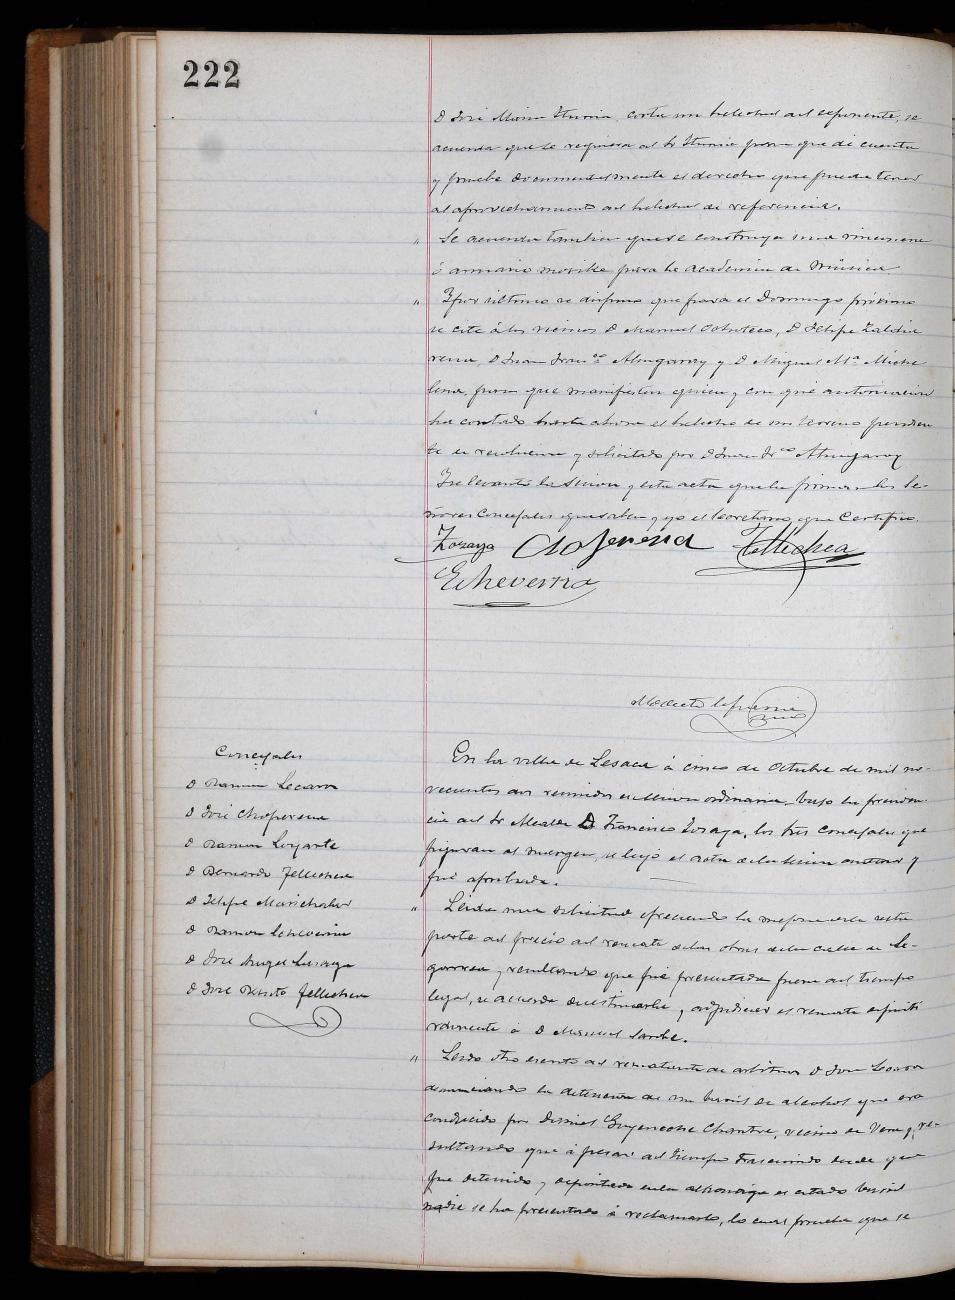 222
D José María Iturria, corta un helechal del exponente, se
acuerda que se requiera al Sr Iturria para que dé cuenta
y pruebe documentalmente el derecho que pueda tener
al aprovechamiento del helechal de referencia.
" Se acuerda tambien que se construya una
ó armario movible para la academia de Música
" Y por último se dispuso que para el Domingo próximo
se cite á los vecinos D Manuel Ochoteco, D Felipe Zaldua
rena, D Juan Franco Almgarray y D Miguel Ma. Miche
lena, para que manifiesten quien y con qué autorizacion
ha cortado hasta ahora el helecho de un terreno pendien
te de resolucion y solicitado por D Juan Fco
Y se levantó la sesion y esta acta que la firman los Se-
ñores Concejales que saben y yo el Secretario que Certifico.
Zozaya Choperena Tellechea
Echeverria
Modesto
Concejales
D Ramon Lecaroz
D José Choperena
D Ramon Loyarte
D Bernardo Tellechea
D Felipe Marichalar
D Ramon Echeverria
D José Angel
D José Benito Tellechea
En la villa de Lesaca á cinco de Octubre de mil no-
vecientos dos reunidos en sesion ordinaria bajo la presiden
cia del Sr Alcalde D Francisco Zozaya, los tres Concejales que
figuran al margen, se leyó el acta de la sesion anterior y
fué aprobada.
" Leida una solicitud ofreciendo la mejora de la sesta
parte del precio del remate de las obras de la calle de
y resultando que fué presentada fuera del tiempo
legal, se acuerda desestimarla y adjudicar el remate definiti
vamente á D Manuel
" Leido otro escrito del rematante de arbitrios D José Lecaroz
denunciando la detencion de un barril de alcohol que era
conducido por Daniel Goyeneche Chantre, vecino de Vera y re-
sultando que á pesar del tiempo trascurrido desde que
fue detenido y depositado en la alhondiga el citado barril
nadie se ha presentado á reclamarlo, lo cual prueba que se